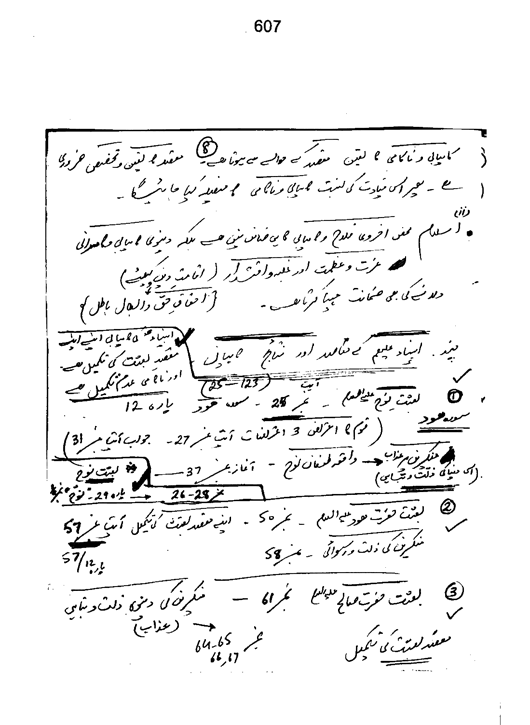 607
کامیابی و ناکامی کا تعین مقصد کے حوالے سے ہوتا ہے۔ (8) مقصد کا تعین و تشخیص ضروری
ہے - پھر اسی کی نسبت کامیابی و ناکامی کا فیصلہ کیا جائیگا۔
اسلام محض اخروی فلاح و کامیابی کا ہی ضامن نہیں ہے بلکہ دنیوی کامیابی و کامرانی
عزت و عظمت اور غلبہ و اقتدار (اقامت دین کیلئے)
دلانے کی بھی ضمانت مہیا کرتا ہے۔ {احقاق حق و ابطال باطل}
چند انبیاء علیہم کے مقاصد اور نتائج کامیابی
انبیاء کی کامیابی اپنے اپنے
مقصد بعثت کی تکمیل ہے
اور ناکامی عدم تکمیل ہے
آیت (25-123)
(1) بعثت نوح علیہ السلام - نمبر 25 - سورہ ھود پارہ 12
سورہ ھود
(قوم کا اعتراض 3 اعتراضات آیت نمبر 27 - جواب آیت نمبر 31)
منکرین پر عذاب واقعہ طوفان نوح - آغاز نمبر 37
(اسی دنیا کی ذلت و تباہی)
بعثت نوح
پارہ 29 - نوح
نمبر 28-26
(2) بعثت حضرت ھود علیہ السلام - نمبر 50 - اپنے مقصد بعثت کی تکمیل آیت نمبر 57
منکرین کی ذلت و رسوائی - نمبر 58
پارہ 12/57
(3) بعثت حضرت صالح علیہ السلام نمبر 61 — منکرین کی دنیوی ذلت و تباہی
(عذاب)
نمبر 64-65
66,67
مقصد بعثت کی تکمیل